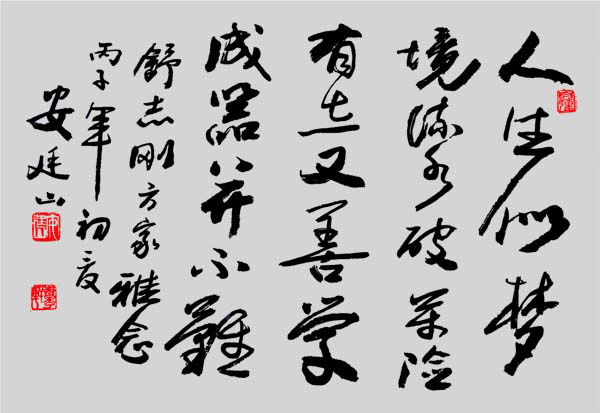 人生似梦
境流水破萬险
有志又善学
成器并不難
舒志刚方家雅念
丙子年初夏
安廷山